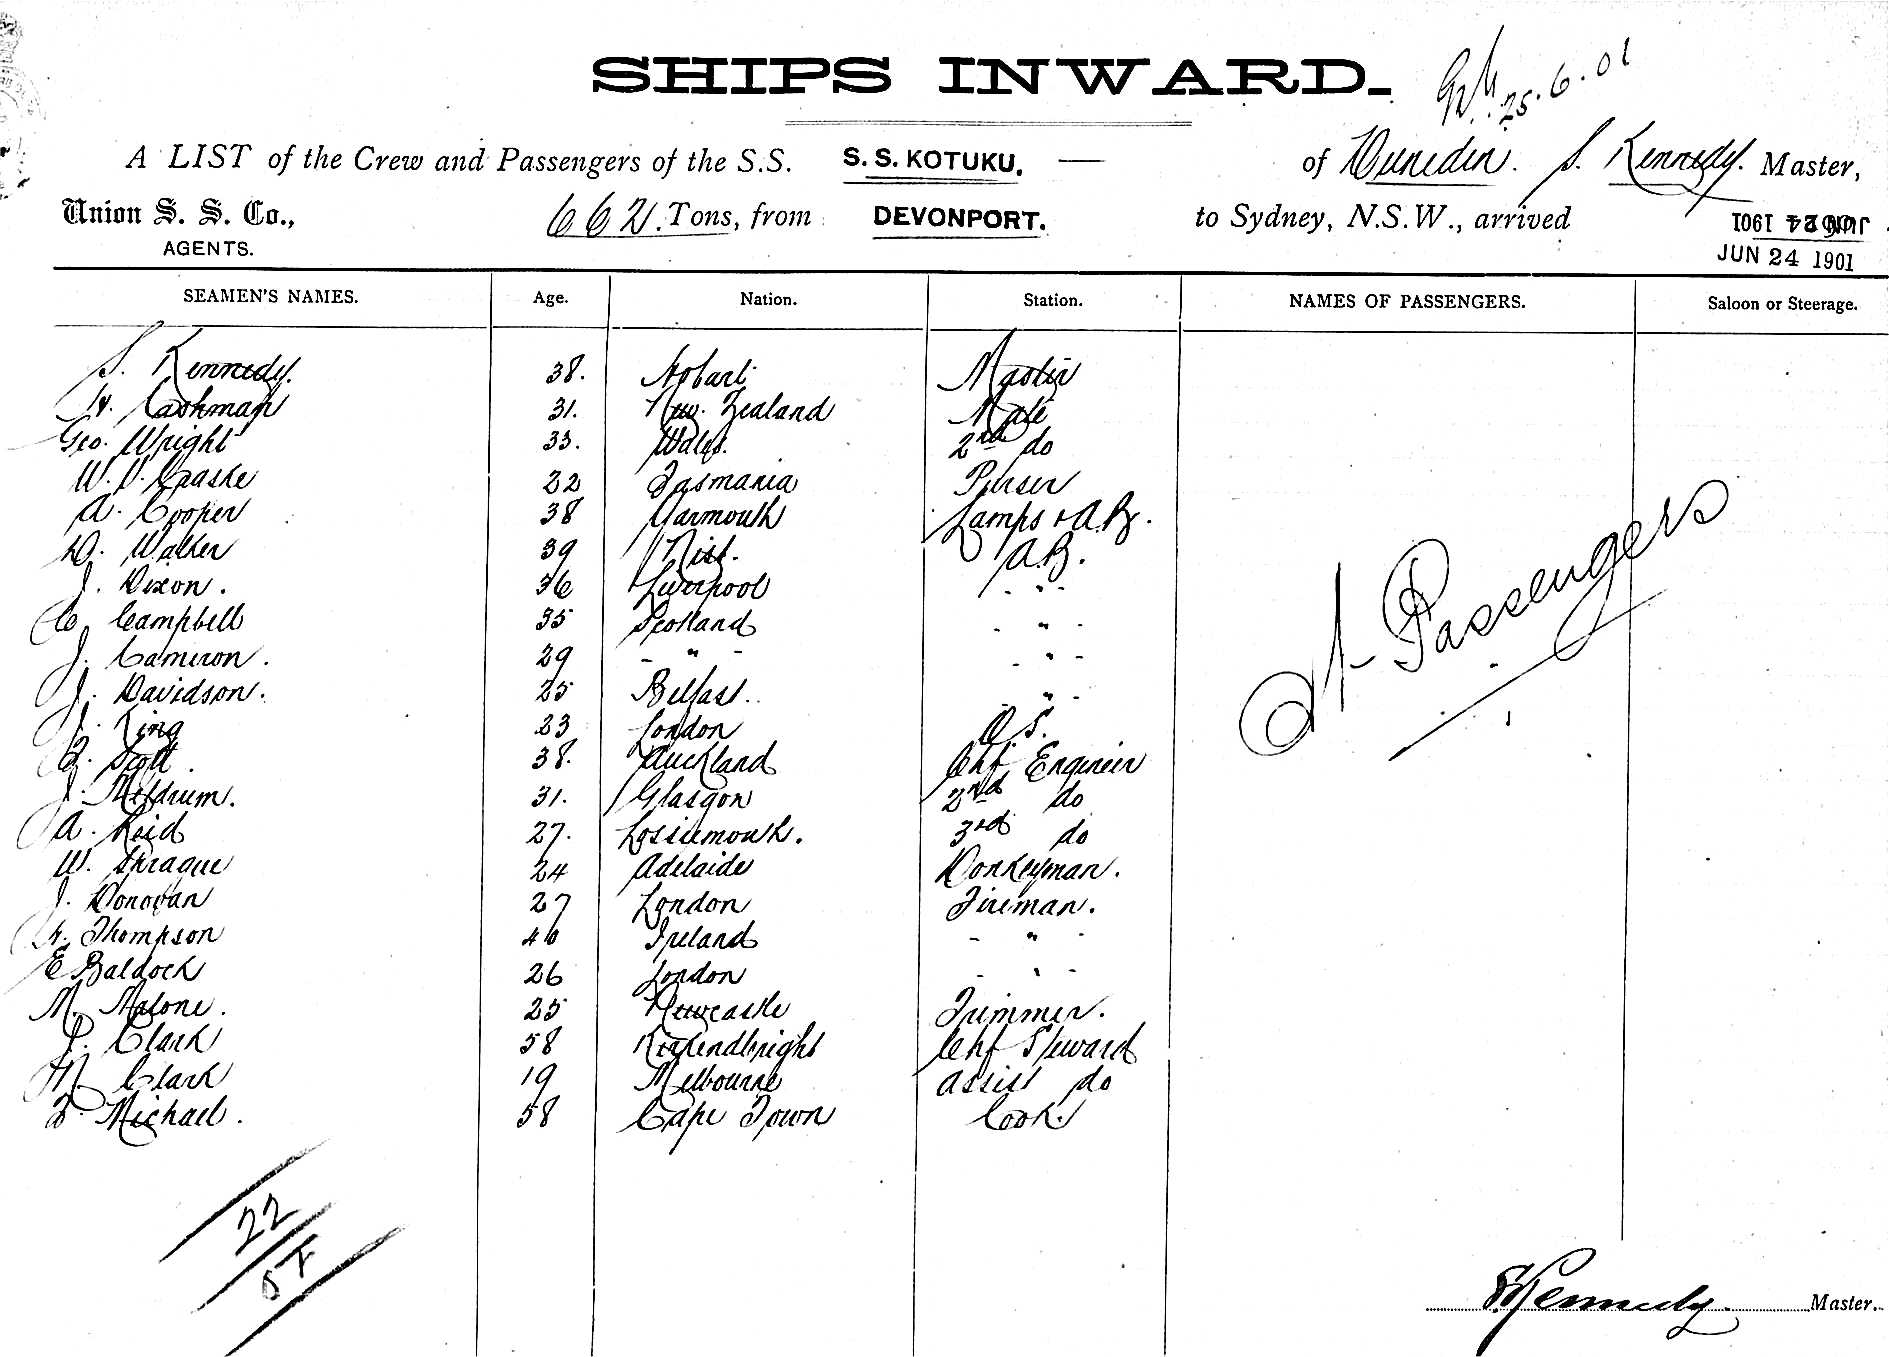 SHIPS INWARD.
25.6.01
A LIST of the Crew and Passengers of the S.S. S. S. KOTUKU. — of Dunedin. S. Kennedy. Master,
Union S. S. Co., 662 Tons, from DEVONPORT. to Sydney, N.S.W., arrived JUN 24 1901
AGENTS. JUN 24 1901
SEAMEN'S NAMES. Age. Nation. Station. NAMES OF PASSENGERS. Saloon or Steerage.
S. Kennedy. 38. Hobart Master
H. Cashman 31. New Zealand Mate
Geo. Wright 33. Wales. 2nd do
W. V. Craske 22 Tasmania Purser
A. Cooper 38 Yarmouth Lamps & A.B.
D. Walker 39 A.B.
J. Dixon. 36 Liverpool - " -
C. Campbell 35 Scotland - " -
J. Cameron. 29 - " - - " -
J. Davidson. 25 Belfast. - " -
J. King 23 London O.S.
Scott 38. Auckland Chf Engineer
J. Meldrum. 31. Glasgow 2nd do
A. Reid 27. Lossiemouth. 3rd do
W. Sprague 24 Adelaide Donkeyman.
J. Donovan 27 London Fireman.
Thompson 40 Ireland - " -
E Baldock 26 London - " -
M. Malone. 25 Newcastle Trimmer.
P. Clark 58 Kirkendbright Chf Steward
H. Clark 19 Melbourne assist do
Michael. 58 Cape Town Cook.
Passengers
22
S Kennedy. Master.